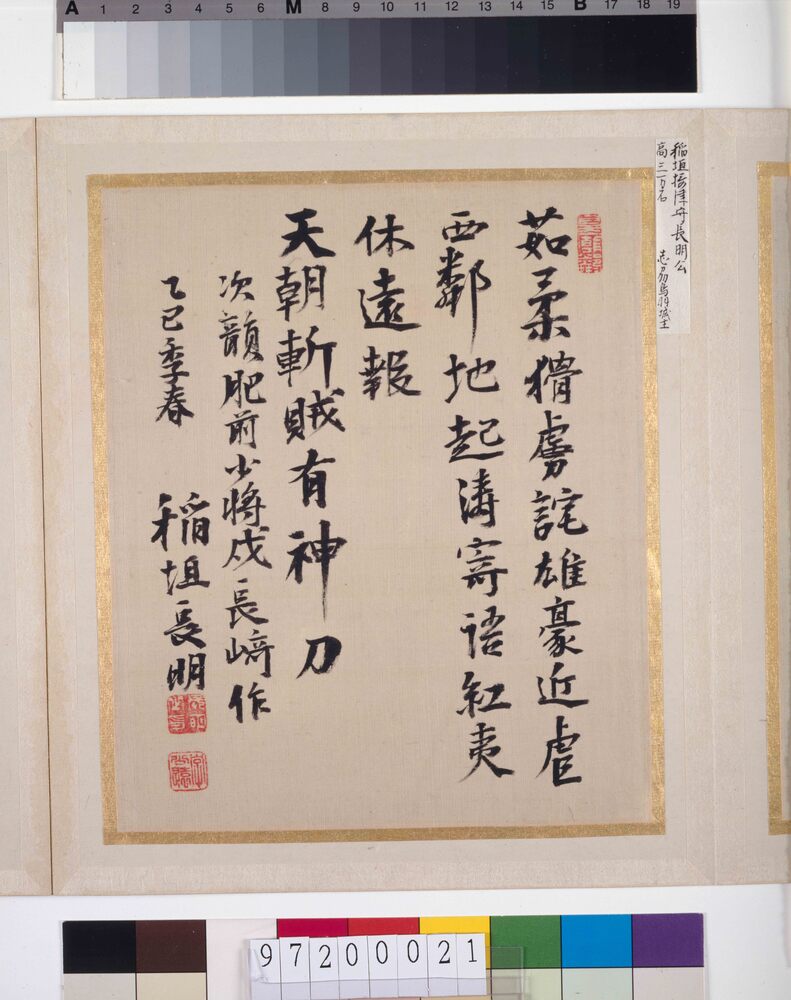 A 1 2 3 4 5 6 M 8 9 10 11 12 13 14 15 B 17 18 19
稲垣摂津守長明公
志州鳥羽城主
高三万石
茹柔猾虜詫雄豪近虐
西鄰地起濤寄語紅夷
休遠報
天朝斬賊有神刀
次韻肥前少將戍長﨑作
乙巳季春
稲垣長明
97200021